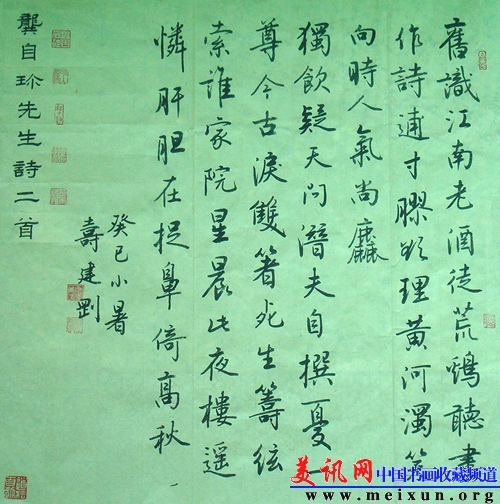 舊識江南老酒徒荒鷄聽盡
作詩逋寸膠欲理黃河濁笑
向時人氣尚麤
獨飲疑天問潛夫自撰憂一
尊今古淚雙箸死生籌弦
索誰家院星晨此夜樓遥
憐肝胆在捉鼻倚高秋
癸巳小暑
壽建剛
龔自珍先生詩二首
美讯网
中国书画收藏频道
www.meixun.org